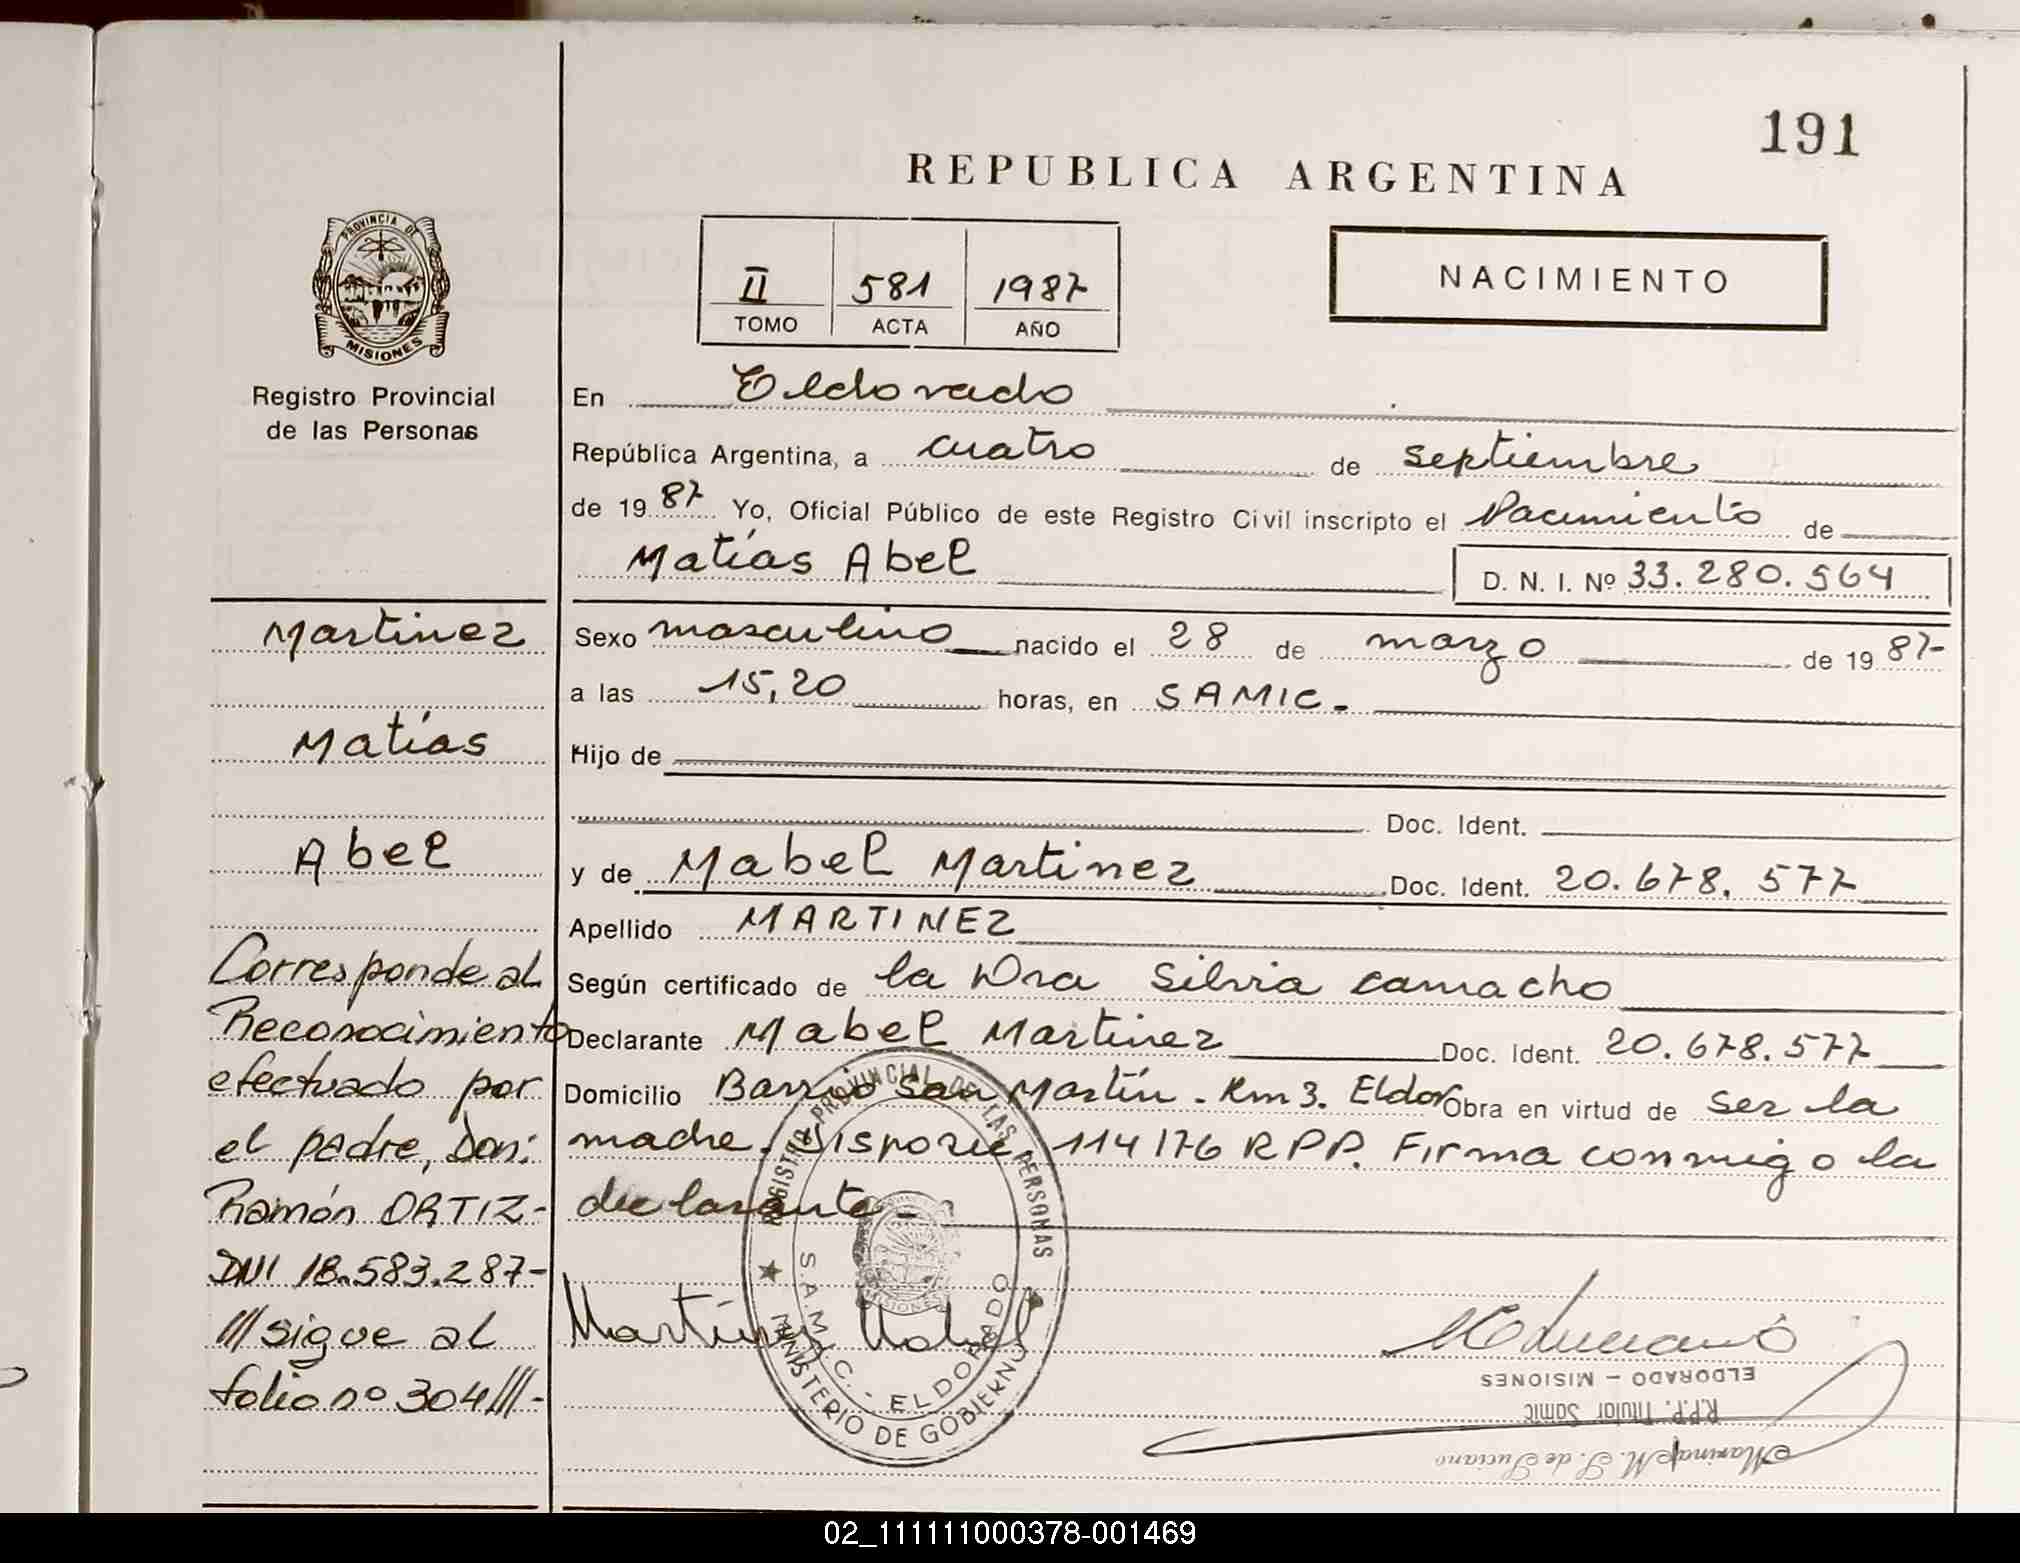 191
REPUBLICA ARGENTINA
PROVINCIA DE
MISIONES
Registro Provincial
de las Personas
II 581 1987
TOMO ACTA AÑO
NACIMIENTO
En Eldorado
República Argentina, a cuatro de septiembre
de 1987 Yo, Oficial Público de este Registro Civil inscripto el Nacimiento de
Matías Abel
D. N. I. Nº 33.280.564
Sexo masculino nacido el 28 de marzo de 1987-
a las 15,20 horas, en SAMIC.
Hijo de
Doc. Ident.
y de Mabel Martinez Doc. Ident. 20.678.577
Apellido MARTINEZ
Según certificado de la Dra Silvia Camacho
Declarante Mabel Martinez Doc. Ident. 20.678.577
Domicilio Barrio San Martín. Km 3. Eldor Obra en virtud de ser la
madre. Disposic 114176 RPP. Firma conmigo la
declarante-
Martinez
Matías
Abel
Corresponde al
Reconocimiento
efectuado por
el padre, Don:
Ramón ORTIZ-
DNI 18.583.287-
///sigue al
folio nº 304///-
Martínez Mabel
REGISTRO PROVINCIAL DE LAS PERSONAS
S.A.M.I.C. - ELDORADO
MINISTERIO DE GOBIERNO
MISIONES
Marina M. S. de Luciano
R.P.P. Titular Samic
ELDORADO - MISIONES
02_111111000378-001469